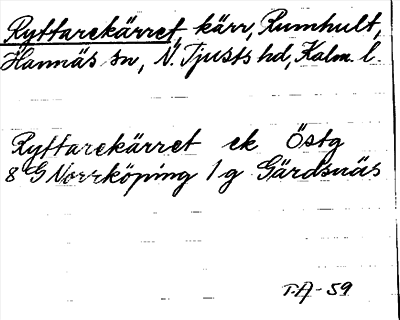 Ryttarekärret, kärr, Rumhult,
Hannäs sn, N. Tjusts hd, Kalm. l.
Ryttarekärret ek Östg
8 G Norrköping 1 g Gärdsnäs
T.A-59